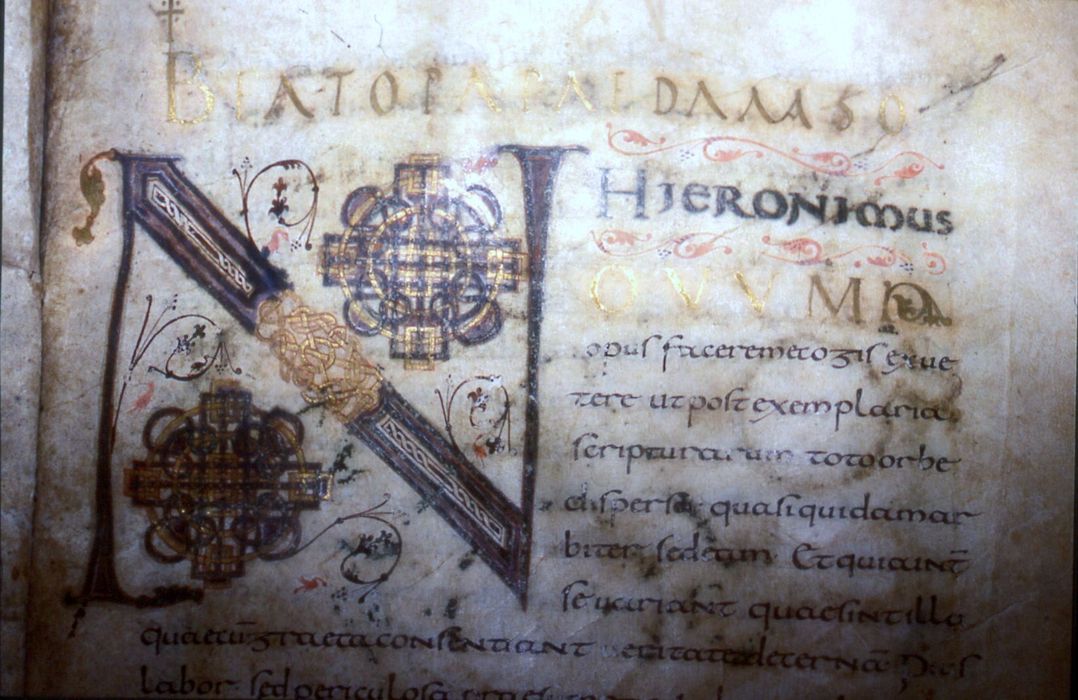 BEATO PAPAE DAMASO
HJERONIMUS
NOVVM
opus facere me cogis ex ve
tere ut post exemplaria
scripturarum toto orbe
dispersa quasi quidam ar
biter sedeam Et quia int̄
se variant quae sint illa
quae cū graeca consentiant veritate decernā Pius
labor sed periculosa